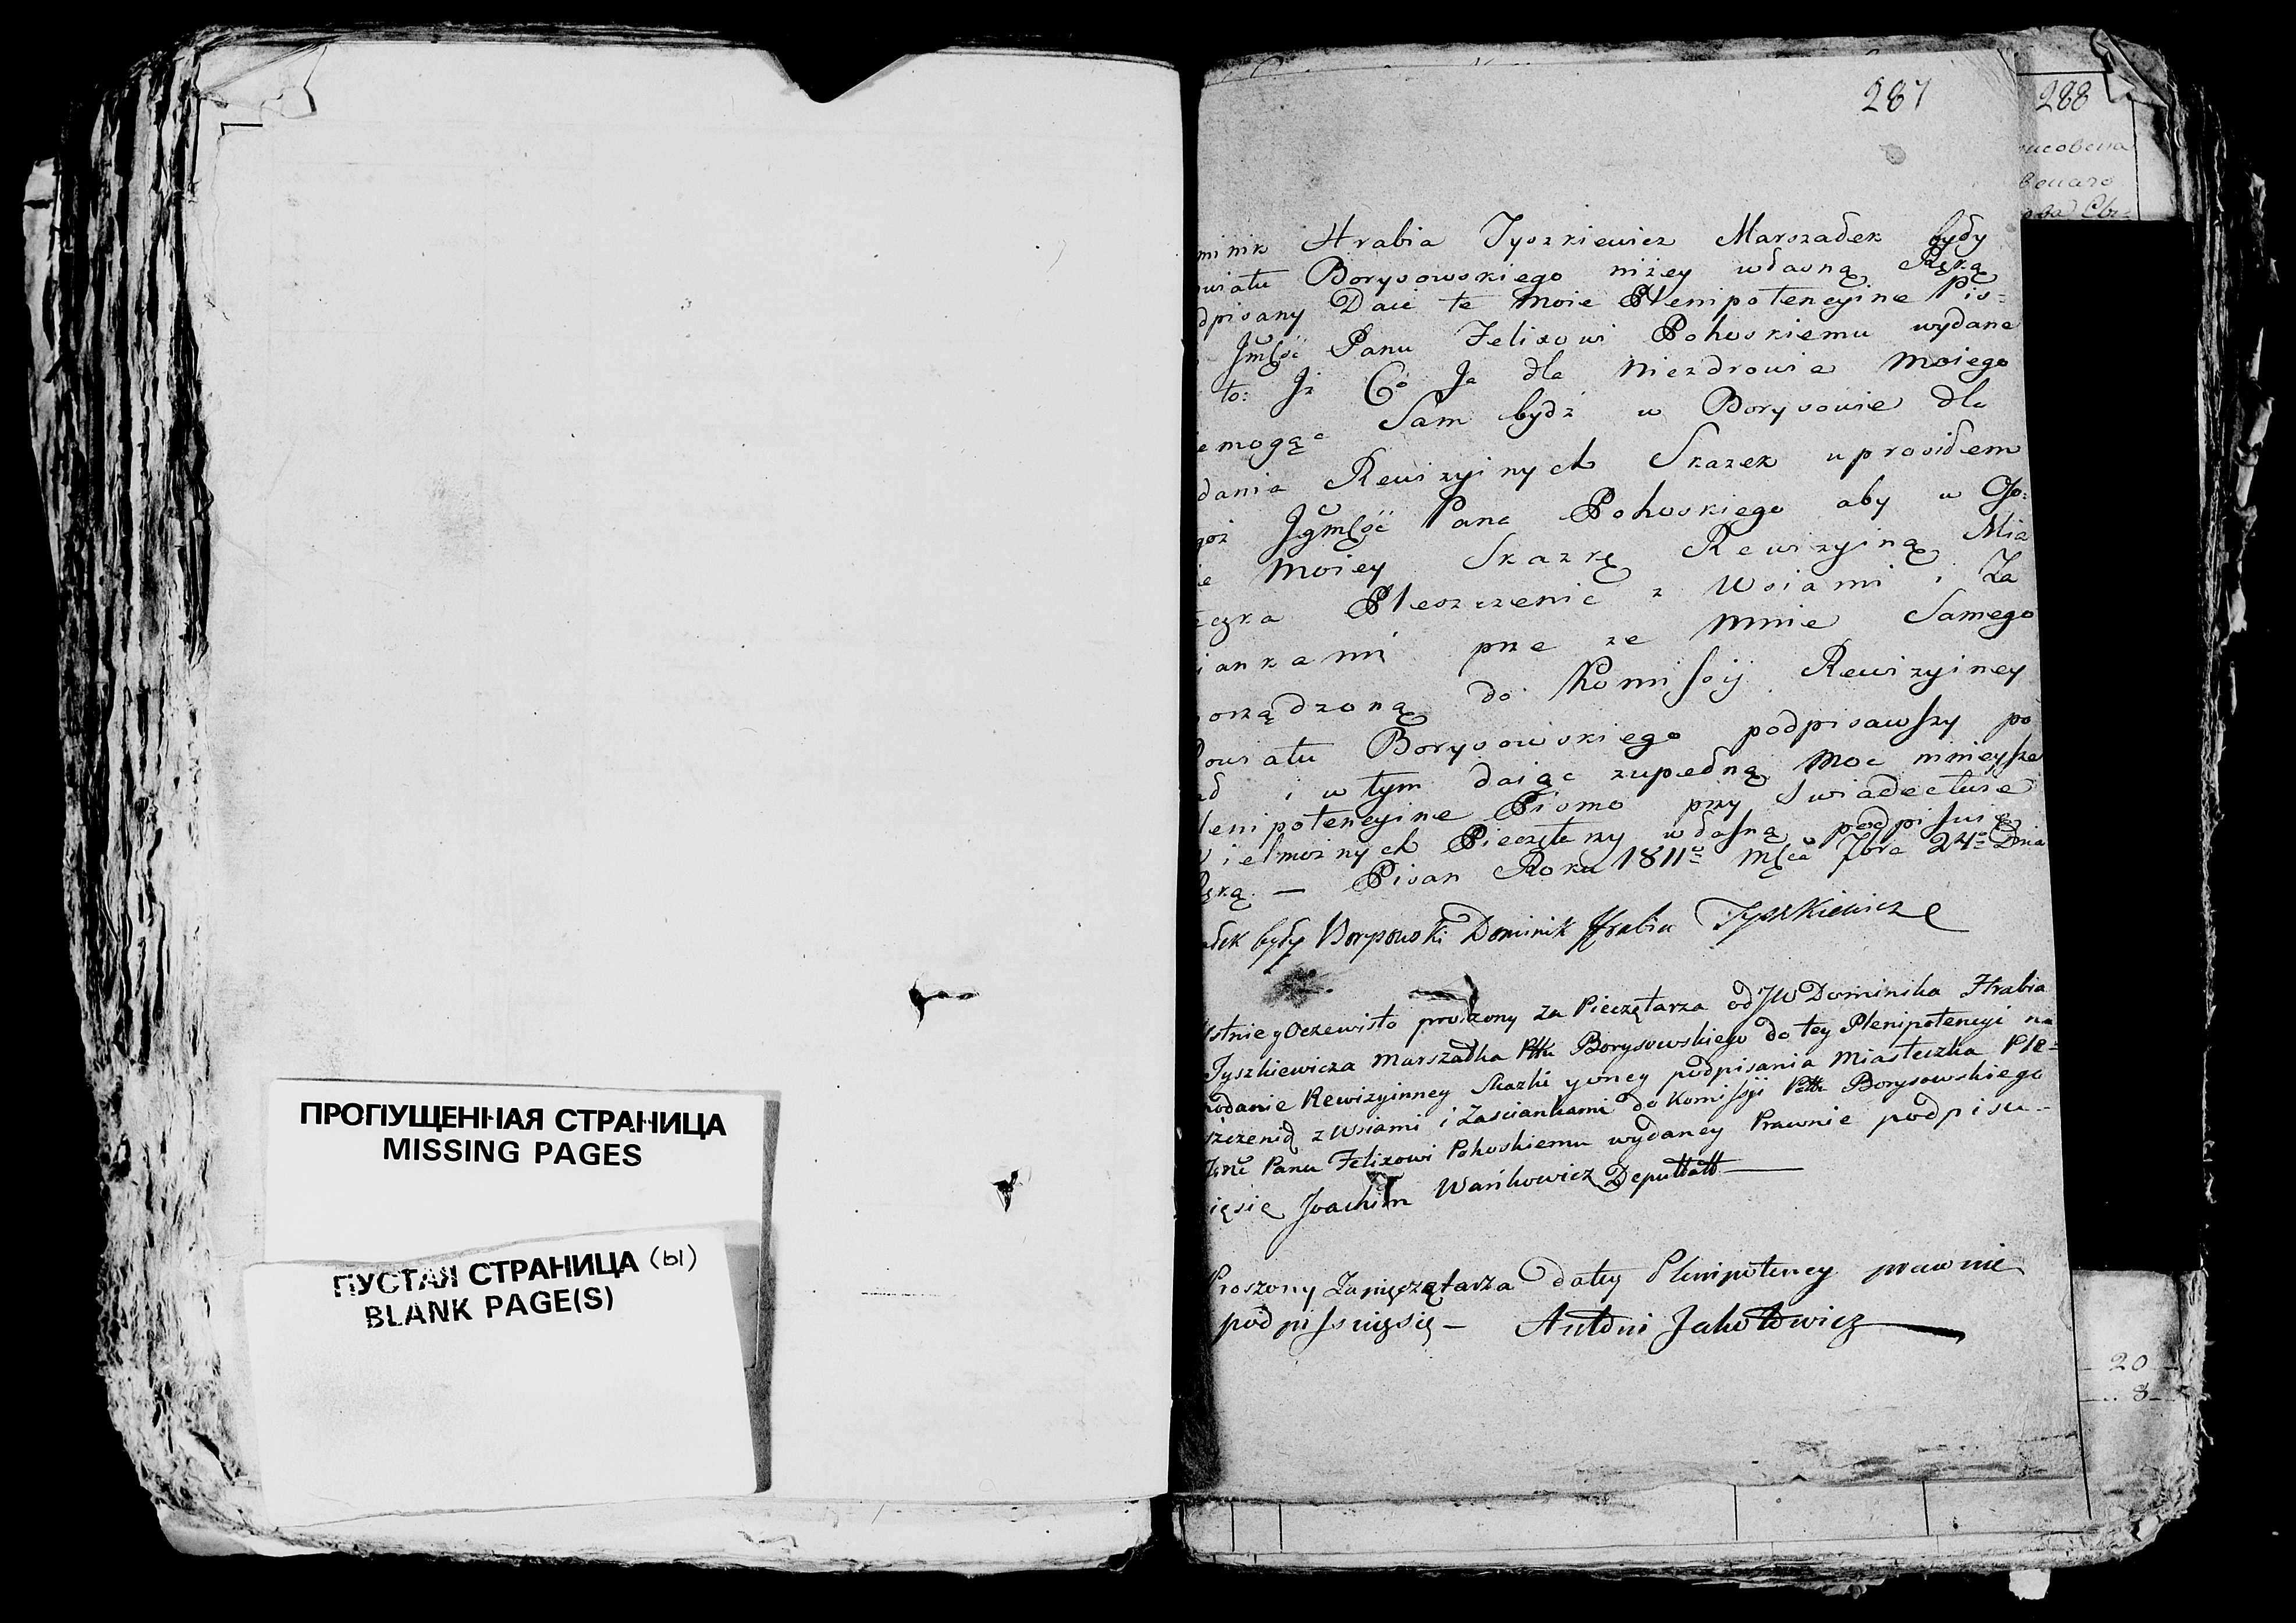 ПРОПУЩЕННАЯ СТРАНИЦА
MISSING PAGES
ПУСТАЯ СТРАНИЦА (ы)
BLANK PAGE(S)
287
288
minik Hrabia Tyszkiewicz Marszałek były
wiatu Borysowskiego niżey własną Ręką
dpisany Daię te moie Plenipotencyine Pis=
Jmść Panu Felixowi Pohoskiemu wydane
to: Iż Co Ja dla niezdrowia moiego
emogąc Sam bydź w Borysowie dla
dania Rewizyinych Skazek uprosiłem
goż Jgmść Pana Pohoskiego aby w Oso=
ie moiey Skazkę Rewizyiną Mia
eczka Pleszczenic z Wsiami i Za
iankami prze ze mnie Samego
orządzoną do Komissyi Rewizyiney
owiatu Borysowskiego podpisawszy po
ał i w tym daiąc zupełną moc ninieysze
lenipotencyine Pismo przy Swiadectwie
ielmoznych Pieczętarzy własną podpisuię
Ręką — Pisan Roku 1811º Msca 7bra 24º Dnia
ałek były Borysowski Dominik Hrabia Tyszkiewicz
Ustnie y Oczewisto proszony za Pieczętarza od JW Dominika Hrabia
Tyszkiewicza Marszałka Pttu Borysowskiego do tey Plenipotencyi na
podanie Rewizyinney Skazki y oney podpisania Miasteczka Ple=
szczenic z Wsiami i Zasciankami do Komissyi Pttu Borysowskiego
Panu Felixowi Pohoskiemu wydaney Prawnie podpisu-
ięsię Joachim Wańkowicz Deputatt
Proszony Zapieczętarza do tey Plenipotency prawnie
podpissuięsię — Antoni Jakotowicz
20
8